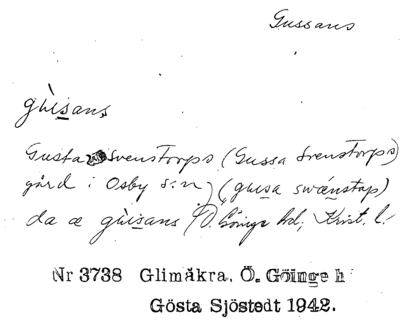 Gussans
gùsans
Gusta Svenstorps (Gussa Svenstorps)
gård i Osby s:n, (gusa swánstap)
da æ gùsans (Ö. Göinge hd, Krist. l.
Nr 3738 Glimåkra, Ö. Göinge h
Gösta Sjöstedt 1942.